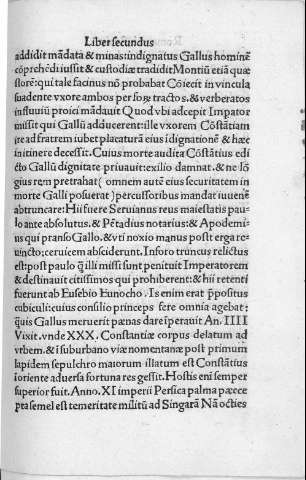 Liber secundus
addidit mãdata & minas: indignatus Gallus hominẽ
cõprehẽdi iussit & custodiæ tradidit Montiũ etiã quæ
storẽ: qui tale facinus nõ probabat Cõiecit in vincula
suadente vxore ambos per fora tractos. & verberatos
in fluuiũ proiici mãdauit Quod vbi adcepit Impator
missit qui Gallũ adducerent: ille vxorem Cõstãtiam
ire ad fratrem iubet placaturã eius ĩdignationẽ & hæc
in itinere decessit. Cuius morte audita Cõstãtius edi
cto Gallũ dignitate priuauit: exilio damnat. & ne lõ
gius rem pretrahat ( omnem autẽ eius securitatem in
morte Galli posuerat ) percussoribus mandat iuuenẽ
abtruncare: Hii fuere Seruianus reus maiestatis pau-
lo ante absolutus. & Pẽtadius notarius: & Apodemi-
us qui pranso Gallo. & vti noxio manus post terga re-
uincto: ceruicem absciderunt. In foro truncus relictus
est: post paulo q̃ illi missi sunt penituit Imperatorem
& destinauit citissimos qui prohiberent: & hii retenti
fuerunt ab Eusebio Eunocho. Is enim erat p̃positus
cubiculi: cuius consilio princeps fere omnia agebat:
q̃uis Gallus meruerit pœnas dare: iperauit An. IIII
Vixit. vnde XXX. Constantiæ corpus delatum ad
vrbem. & ĩ suburbano viæ nomentanæ post primum
lapidem sepulchro maiorum illatum est Cõstãtius
ĩ oriente aduersa fortuna res gessit. Hostis enĩ semper
superior fuit. Anno. XI imperii Persica palma præce
pta semel est temeritate militũ ad Singarã Nã octies